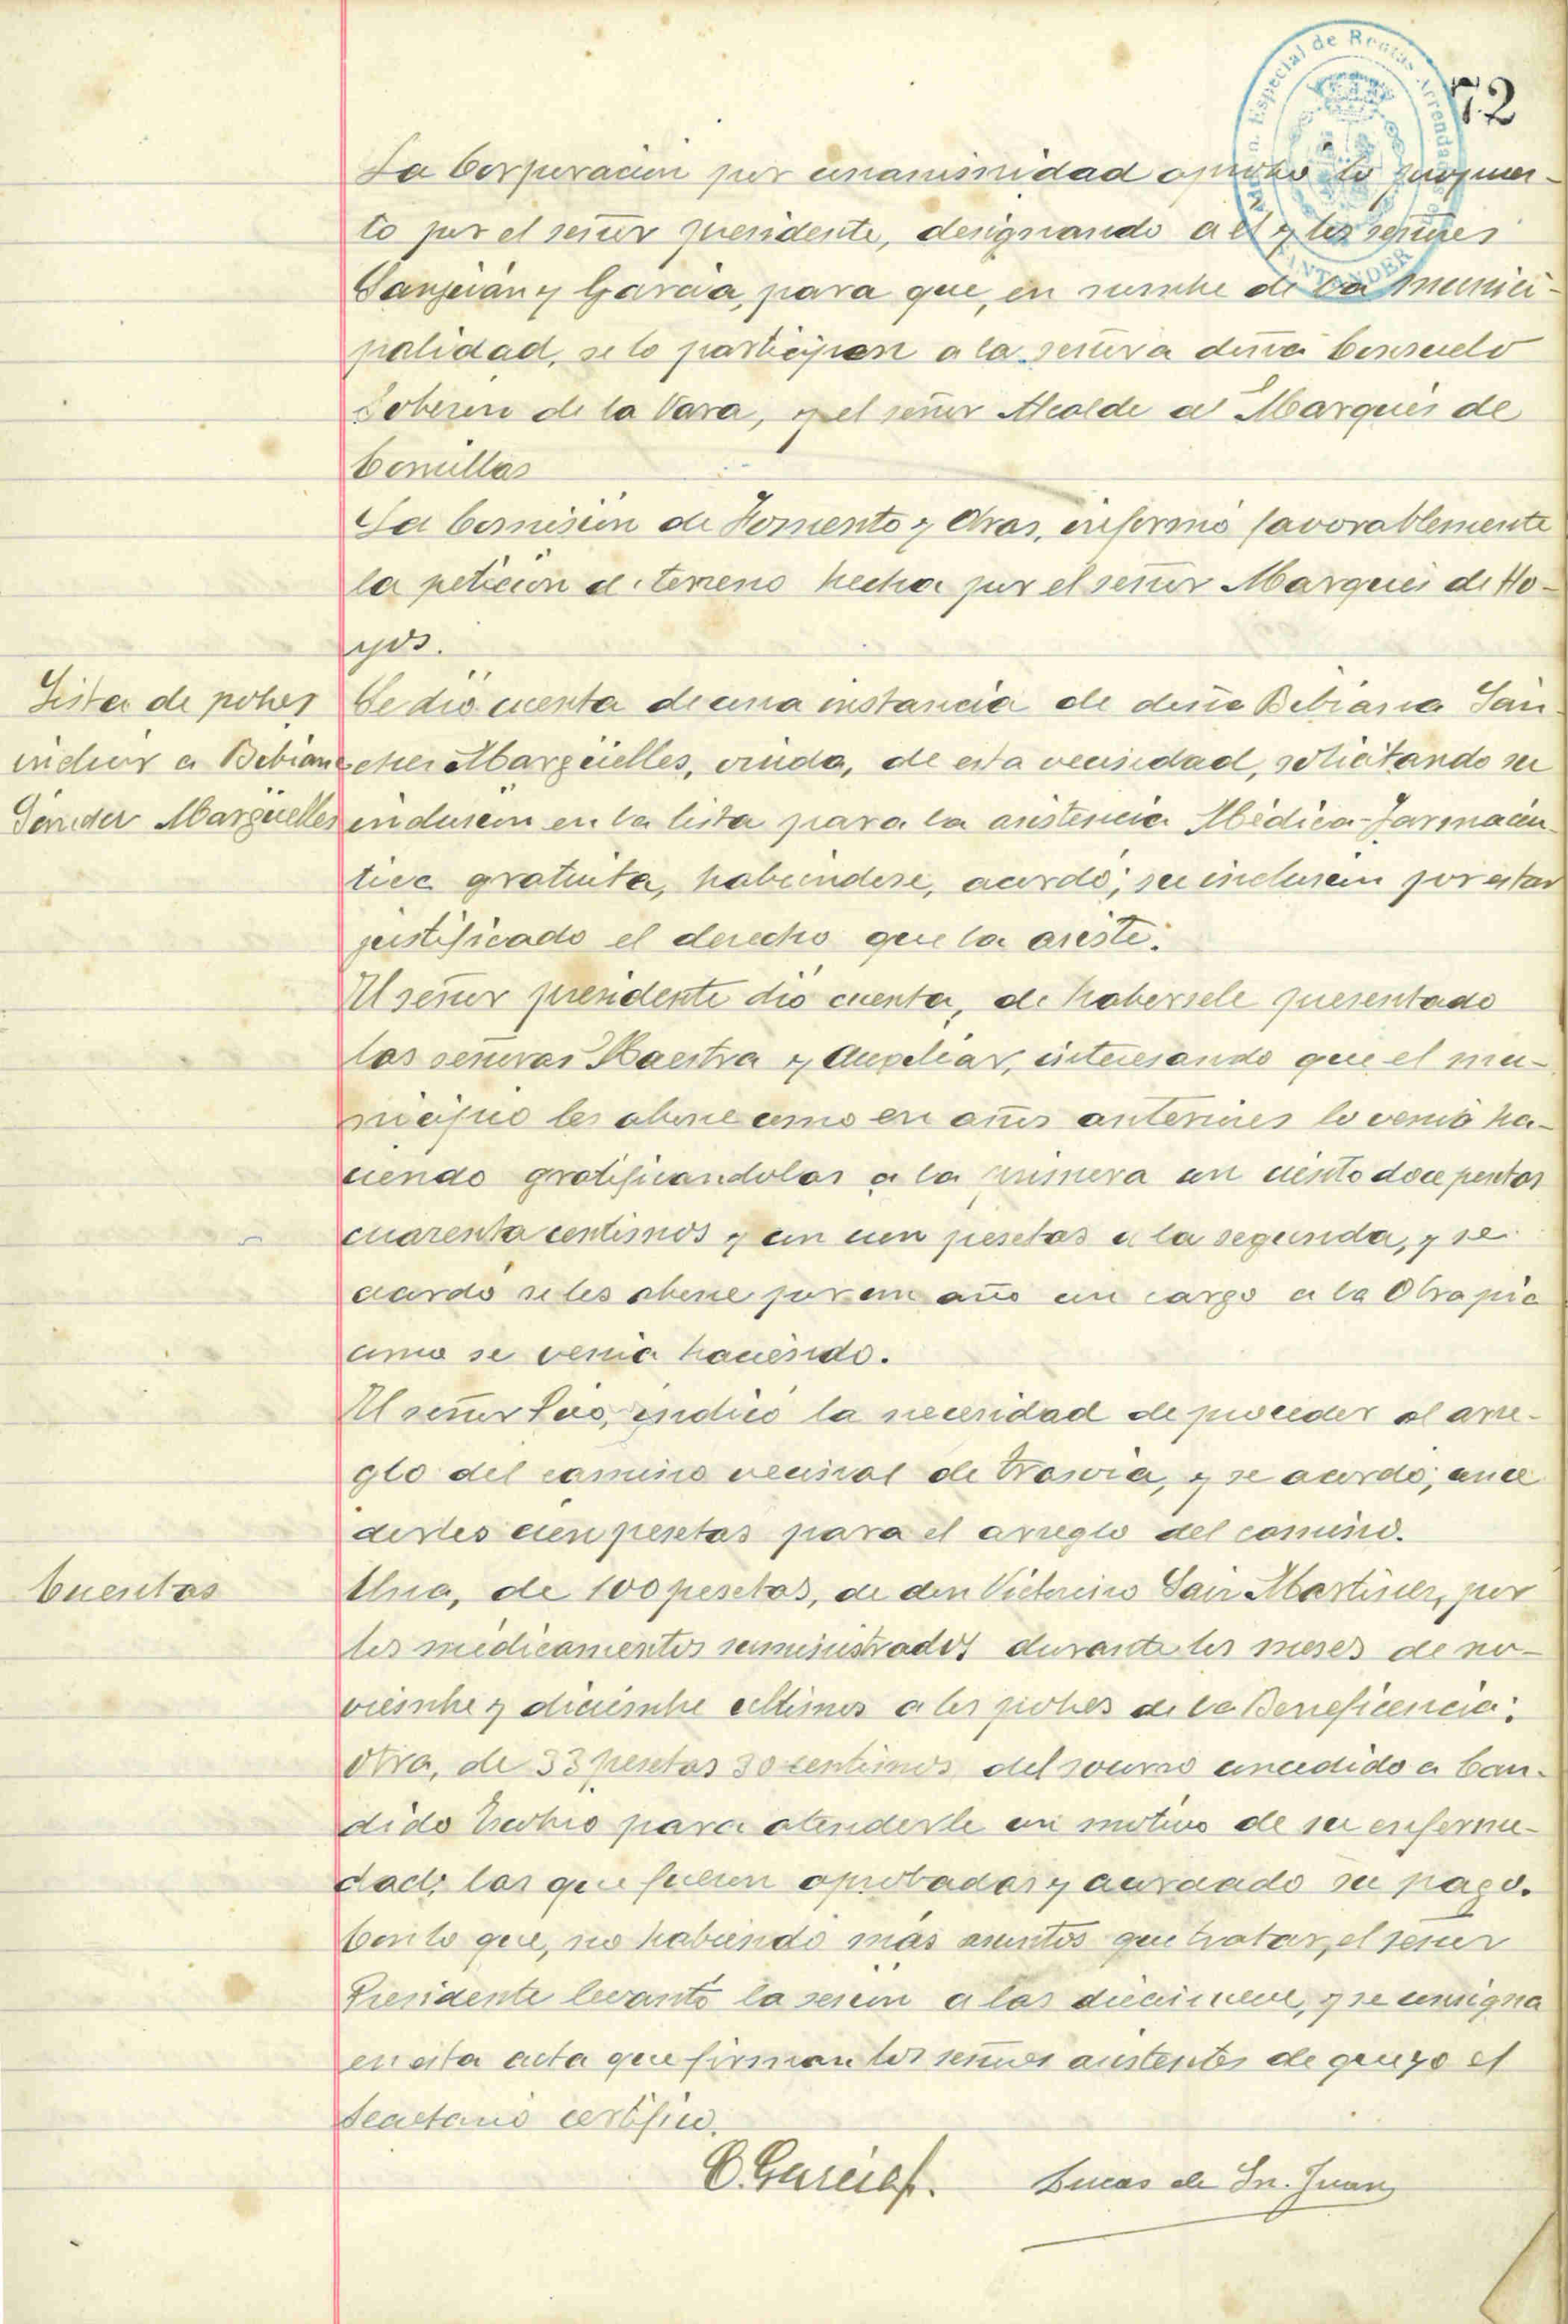 72
Especial de Rentas Arrendadas
SANTANDER
La Corporación por unanimidad aprobó lo propues-
to por el señor presidente, designando a él y los señores
Sanjuán y García, para que, en nombre de la munici-
palidad, se lo participen a la señora doña Consuelo
Soberón de la Vara, y el señor Alcalde al Marqués de
Comillas
La Comisión de Fomento y Obras, informó favorablemente
la petición de terreno hecha por el señor Marqués de Ho-
yos.
Lista de pobres
incluir a Bibiana
Sánchez Margüelles
Se dió cuenta de una instancia de doña Bibiana Sán-
chez Margüelles, viuda, de esta vecindad, solicitando su
inclusión en la lista para la asistencia Médica-Farmacéu-
tica gratuita, habiéndose, acordó; su inclusión por estar
justificado el derecho que la asiste.
El señor presidente dió cuenta, de habersele presentado
las señoras Maestra y Auxiliar, interesando que el mu-
nicipio les abone como en años anteriores lo venía ha-
ciendo gratificandolas a la primera con ciento doce pesetas
cuarenta centimos y con cien pesetas a la segunda, y se
acordó se les abone por un año con cargo a la Obra pía
como se venía haciendo.
El señor indicó la necesidad de proceder al arre-
glo del camino vecinal de Trasvía, y se acordó; conce
derles cien pesetas para el arreglo del camino.
Cuentas
Una, de 100 pesetas, de don Victorino Sainz Martínez, por
los médicamentos suministrados durante los meses de no-
viembre y diciembre ultimos a los pobres de la Beneficencia;
otra, de 33 pesetas 30 centimos del socorro concedido a Can-
dido para atenderle con motivo de su enferme-
dad; las que fueron aprobadas y acordado su pago.
Con lo que, no habiendo más asuntos que tratar, el señor
Presidente levantó la sesión a las diecinueve, y se consigna
en esta acta que firman los señores asistentes de que yo el
Secretario certifico.
C. García
Lucas de Sn. Juan